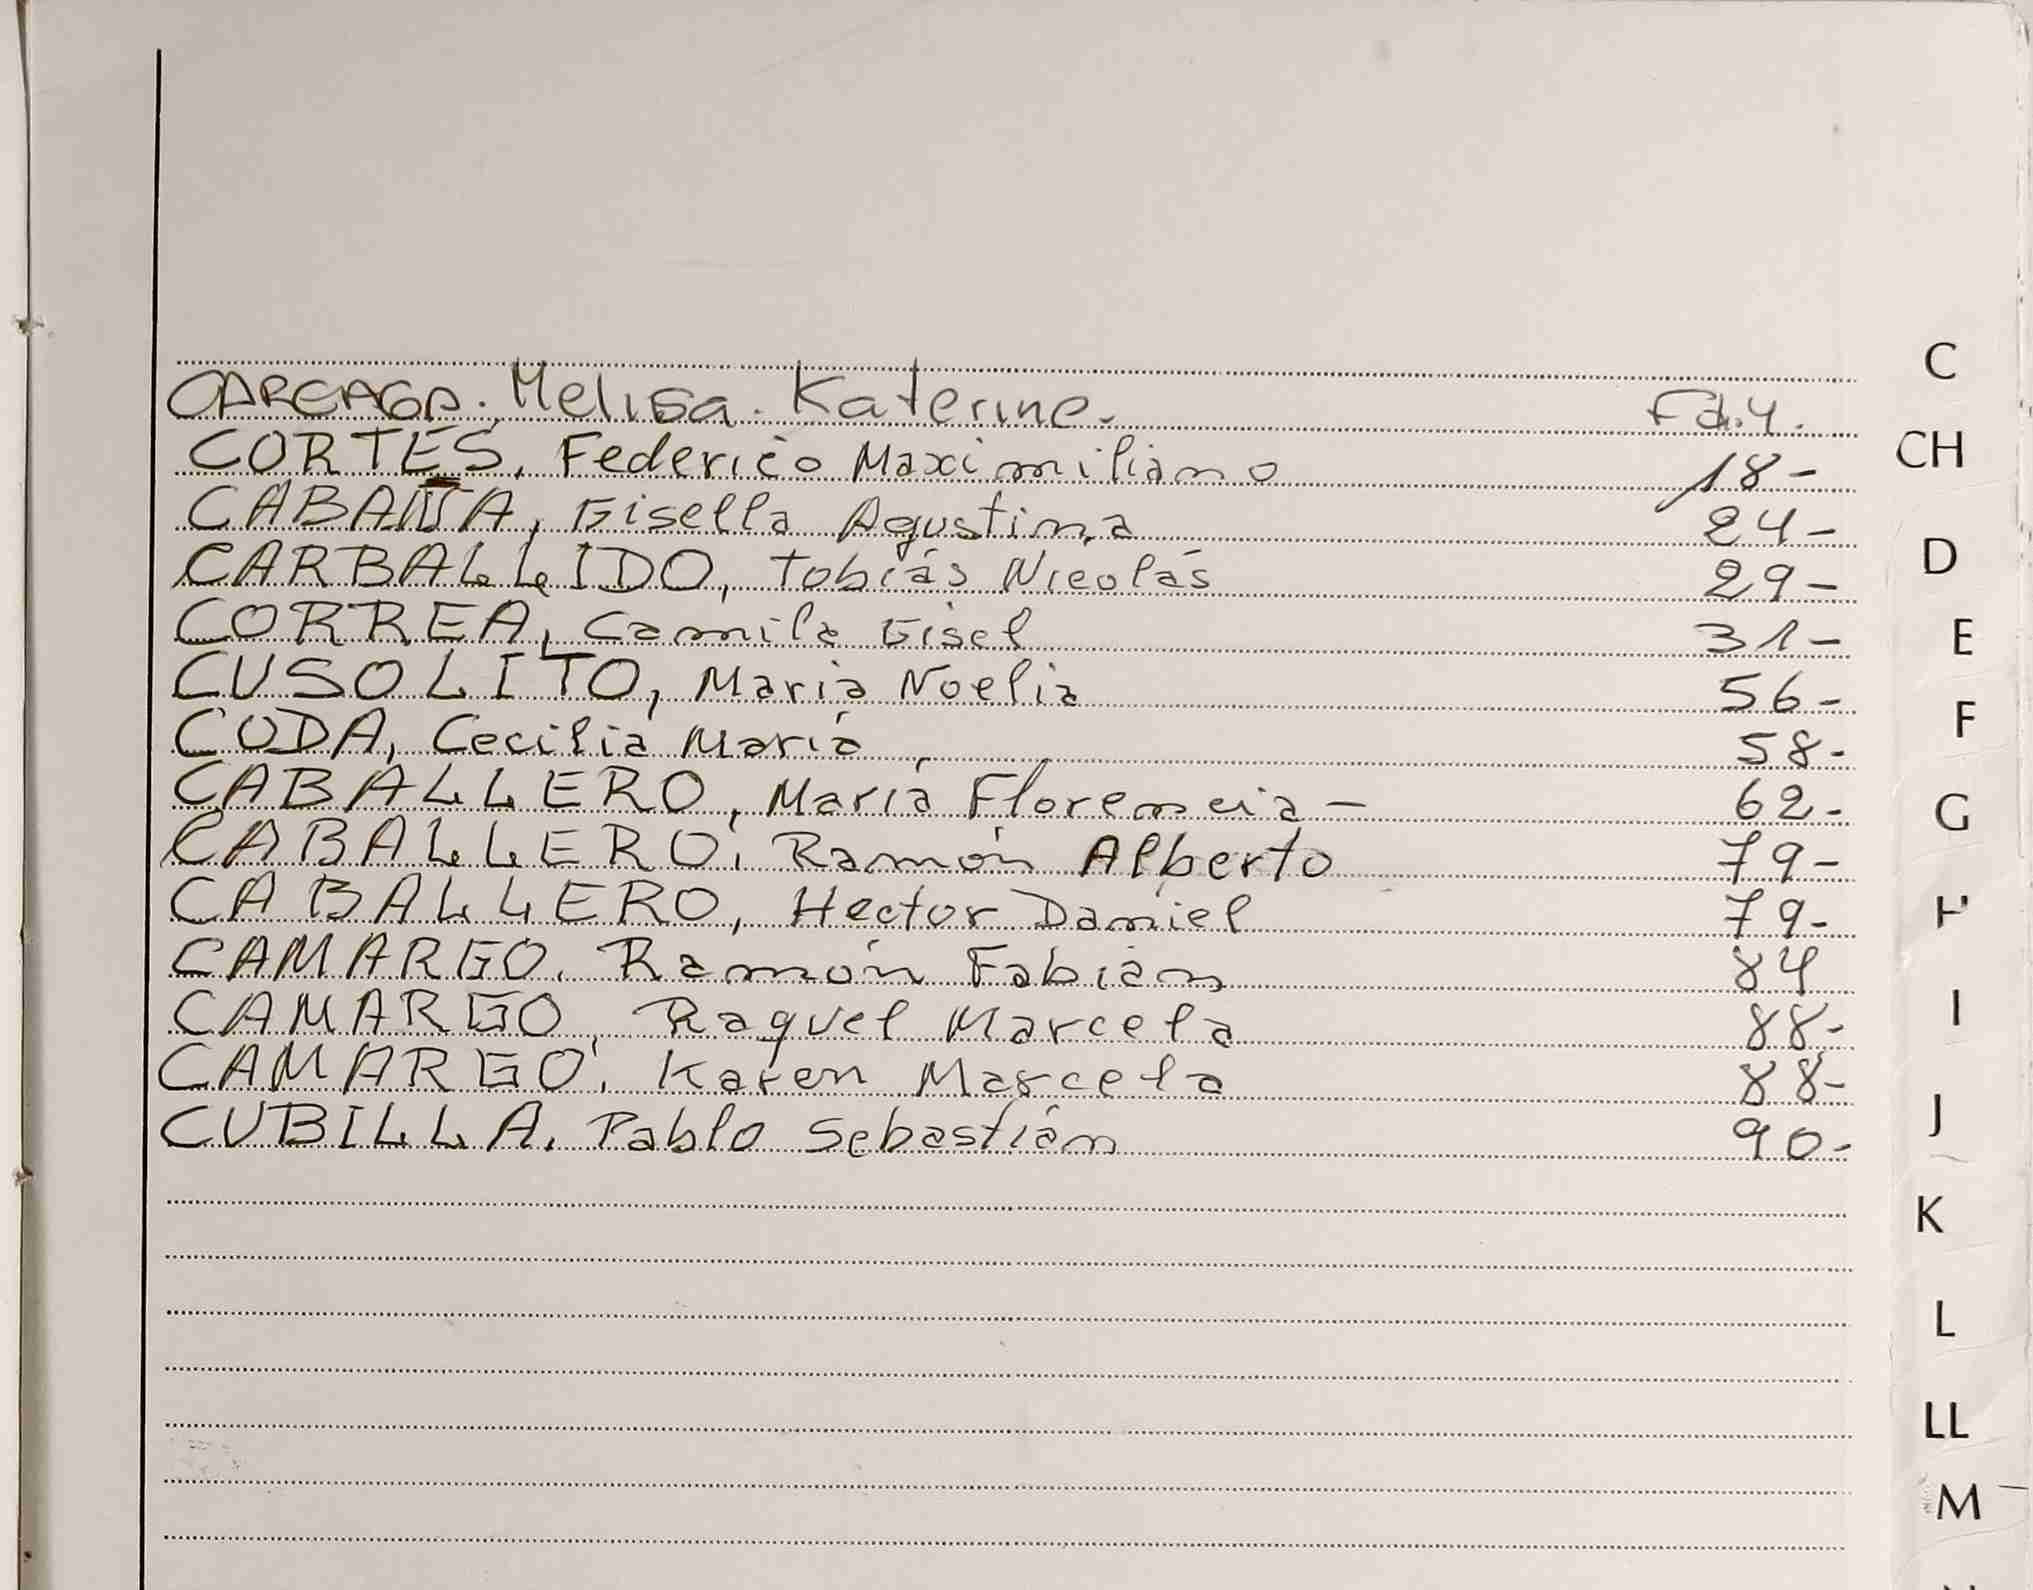 CARCAGA. Melisa. Katerine. Fol.4.
CORTES, Federico Maximiliano 18-
CABAÑA, Gisella Agustina 24-
CARBALLIDO, Tobías Nicolás 29-
CORREA, Camila Gisel 31-
CUSOLITO, María Noelia 56-
CODA, Cecilia María 58-
CABALLERO, María Florencia - 62-
CABALLERO, Ramón Alberto 79-
CABALLERO, Hector Daniel 79-
CAMARGO, Ramón Fabián 84
CAMARGO, Raquel Marcela 88-
CAMARGO, Karen Marcela 88-
CUBILLA, Pablo Sebastián 90-
C
CH
D
E
F
G
H
I
J
K
L
LL
M